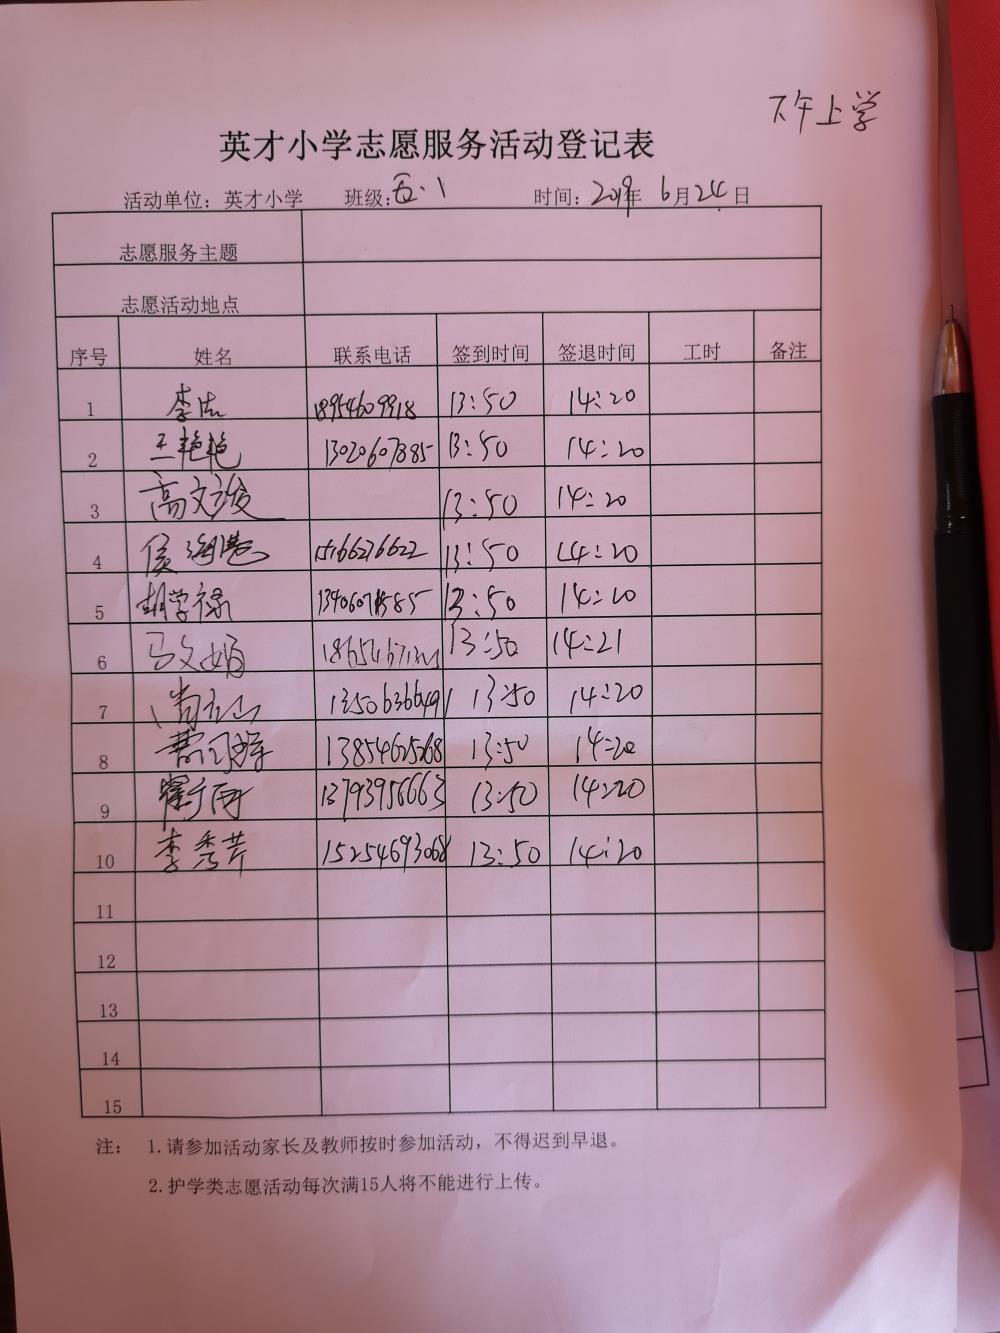 下午上学
英才小学志愿服务活动登记表
活动单位：英才小学 班级：五.1 时间：2019年 6月24日
志愿服务主题
志愿活动地点
序号 姓名 联系电话 签到时间 签退时间 工时 备注
1 李杰 18954609918 13:50 14:20
2 王艳艳 13020607885 13:50 14:20
3 高文俊 13:50 14:20
4 15166276622 13:50 14:20
5 胡学禄 13:50 14:20
6 马文娟 13:50 14:21
7 13:50 14:20
8 13854625268 13:50 14:20
9 13793956663 13:50 14:20
10 李秀芹 15254693068 13:50 14:20
11
12
13
14
15
注： 1.请参加活动家长及教师按时参加活动，不得迟到早退。
2.护学类志愿活动每次满15人将不能进行上传。